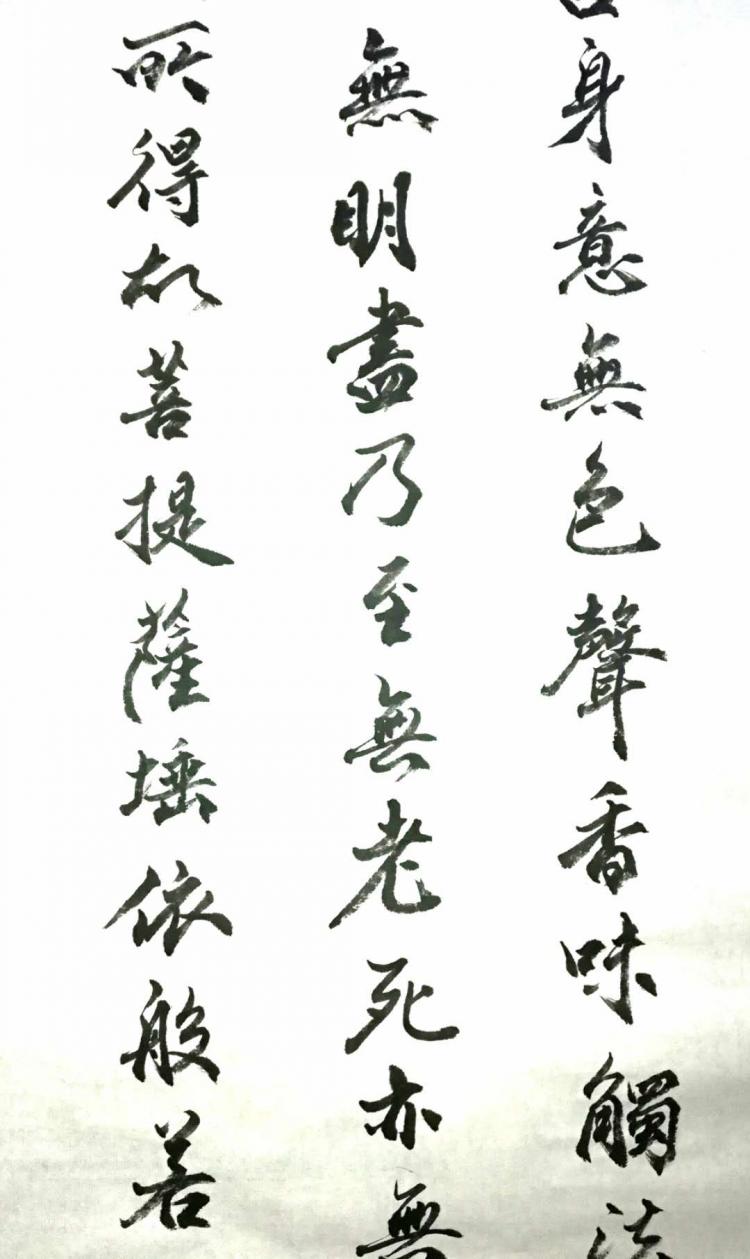 身意無色聲香味觸法
無明盡乃至無老死亦無
所得故菩提薩埵依般若